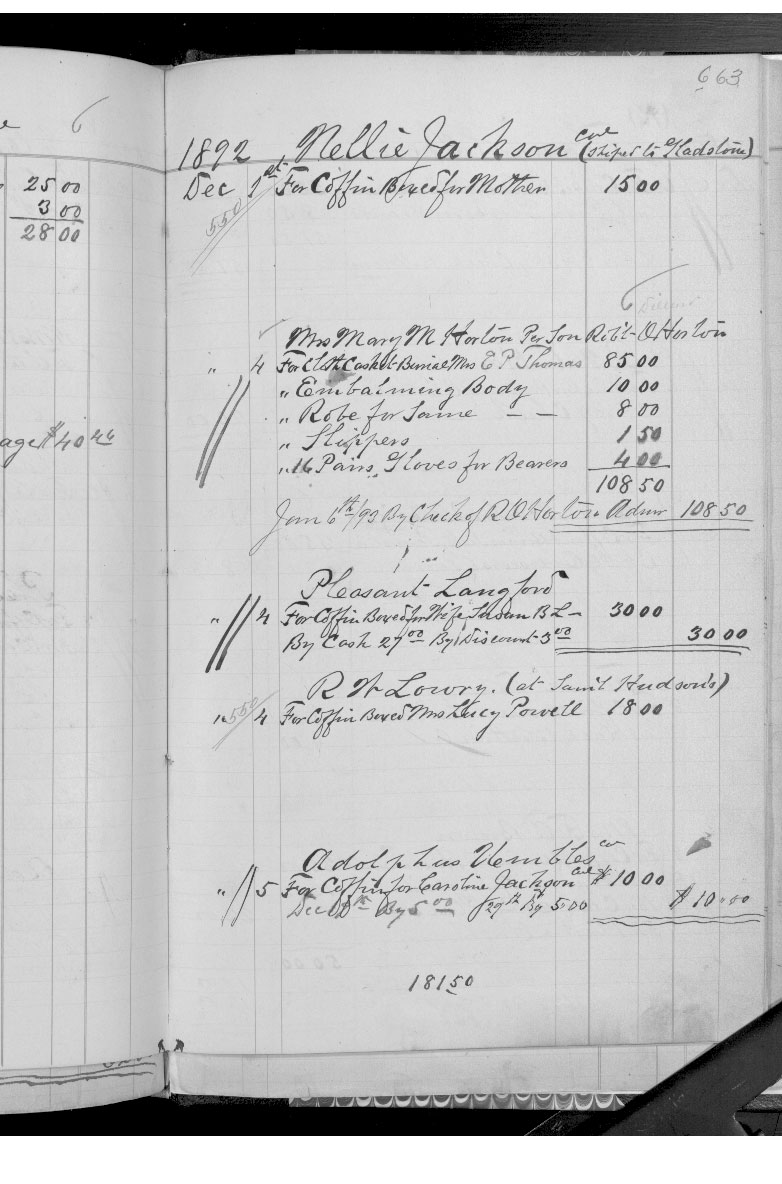 25 00
3 00
28 00
age $40 46
663
1892 Nellie Jackson Col (Shiped to Gladstone)
Dec 1st For Coffin Boxed for Mother 15 00
550
Mrs Mary M Horton Per Son Rob't O Horton
" 4 For Cloth Casket Burial Mrs E P Thomas 85 00
" Embalming Body 10 00
" Robe for Same — — 8 00
" Slippers 1 50
" 16 Pairs Gloves for Bearers 4 00
108 50
Jan 6th/93 By Check of R O Horton Admr 108 50
Pleasant Langford
" 4 For Coffin Boxed for Wife Susan B L – 30 00
By Cash 27 00 By Discount 3 00 30 00
R W Lowry. (at Saml Hudson's)
" 550 4 For Coffin Boxed Mrs Lucy Powell 18 00
Adolphus Col
" 5 For Coffin for Caroline Jackson Col $ 10 00
Dec By 5 00 29th By 5.00 $ 10.00
181 50